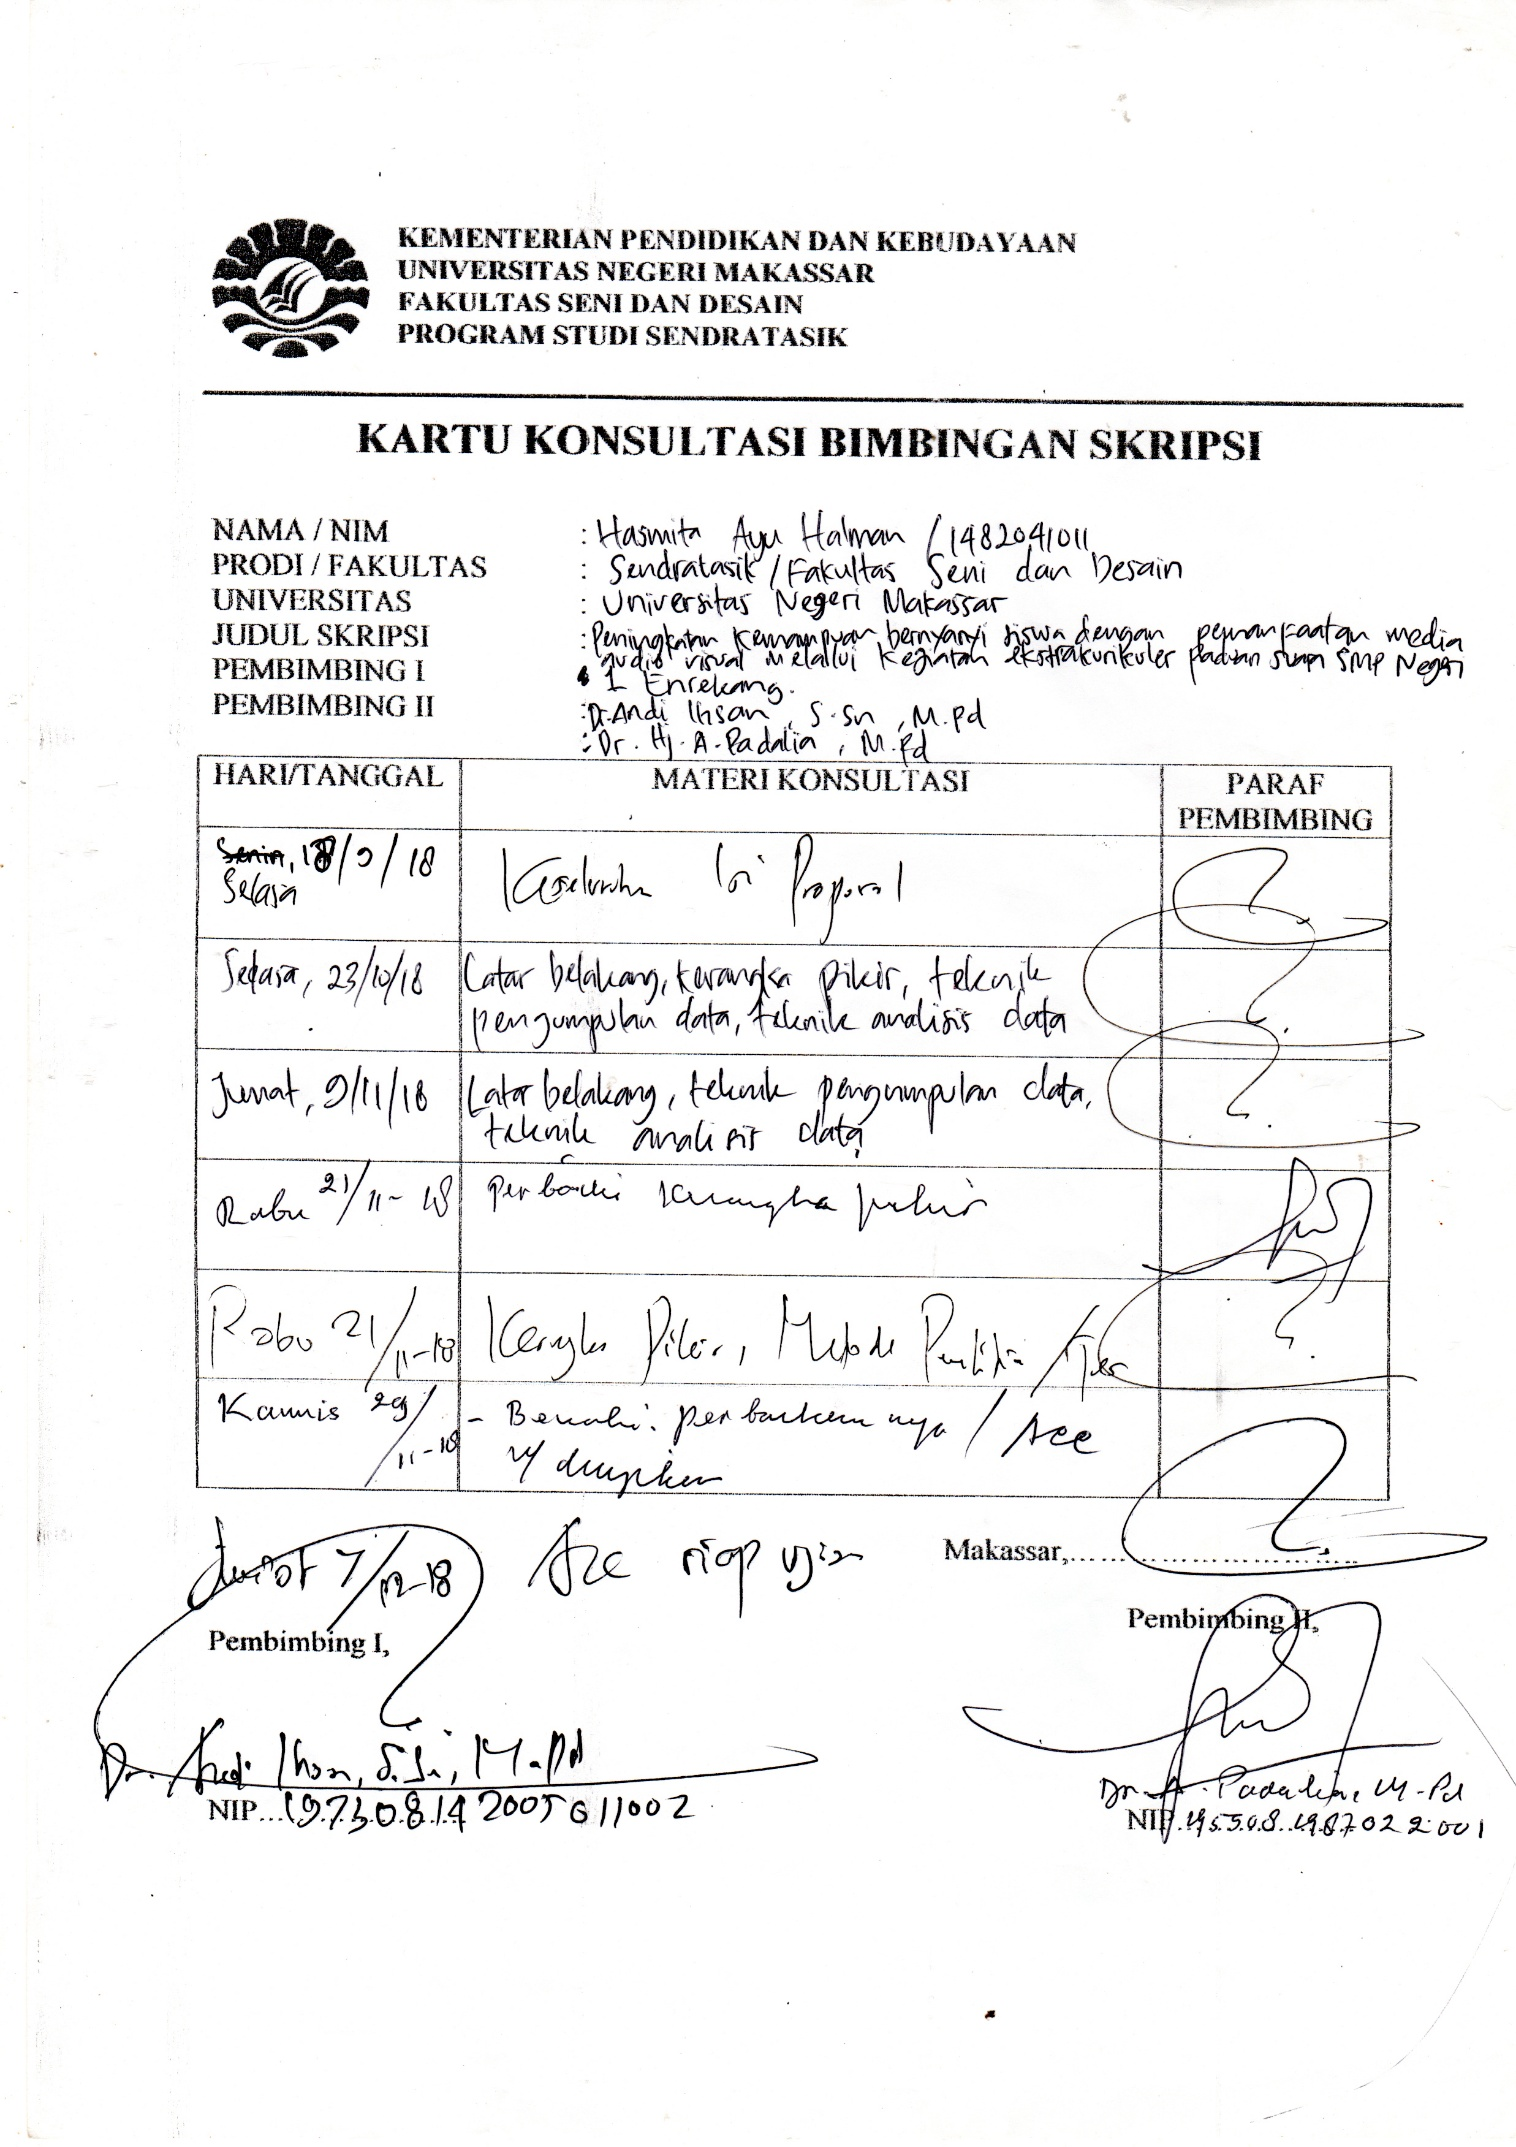 KEMENTERIAN PENDIDIKAN DAN KEBUDAYAAN
UNIVERSITAS NEGERI MAKASSAR
FAKULTAS SENI DAN DESAIN
PROGRAM STUDI SENDRATASIK
KARTU KONSULTASI BIMBINGAN SKRIPSI
NAMA / NIM : Hasmita Ayu Halman / 1482041011
PRODI / FAKULTAS : Sendratasik / Fakultas Seni dan Desain
UNIVERSITAS : Universitas Negeri Makassar
JUDUL SKRIPSI : Peningkatan kemampuan bernyanyi siswa dengan pemanfaatan media
audio visual melalui kegiatan ekstrakurikuler paduan suara SMP Negeri
1 Enrekang.
PEMBIMBING I : Dr. Andi Ihsan, S.Sn, M.Pd
PEMBIMBING II : Dr. Hj. A. Padalia, M.Pd
HARI/TANGGAL MATERI KONSULTASI PARAF
PEMBIMBING
Senin, 18/9/18 Keseluruhan Isi Proposal
Selasa
Selasa, 23/10/18 Latar belakang, kerangka pikir, teknik
pengumpulan data, teknik analisis data
Jumat, 9/11/18 Latar belakang, teknik pengumpulan data,
teknik analisis data
Rabu 21/11-18 perbaiki kerangka pikir
Rabu 21/11-18 Kerangka Pikir, Metode Penelitian /
Kamis 29/11-18 - Benahi perbaikannya / Acc
Jumat 7/12-18 Acc siap ujian Makassar,............................
Pembimbing I, Pembimbing II,
Dr. Andi Ihsan, S.Sn, M.Pd Dr. A. Padalia, M.Pd
NIP...19730814 200501 1002